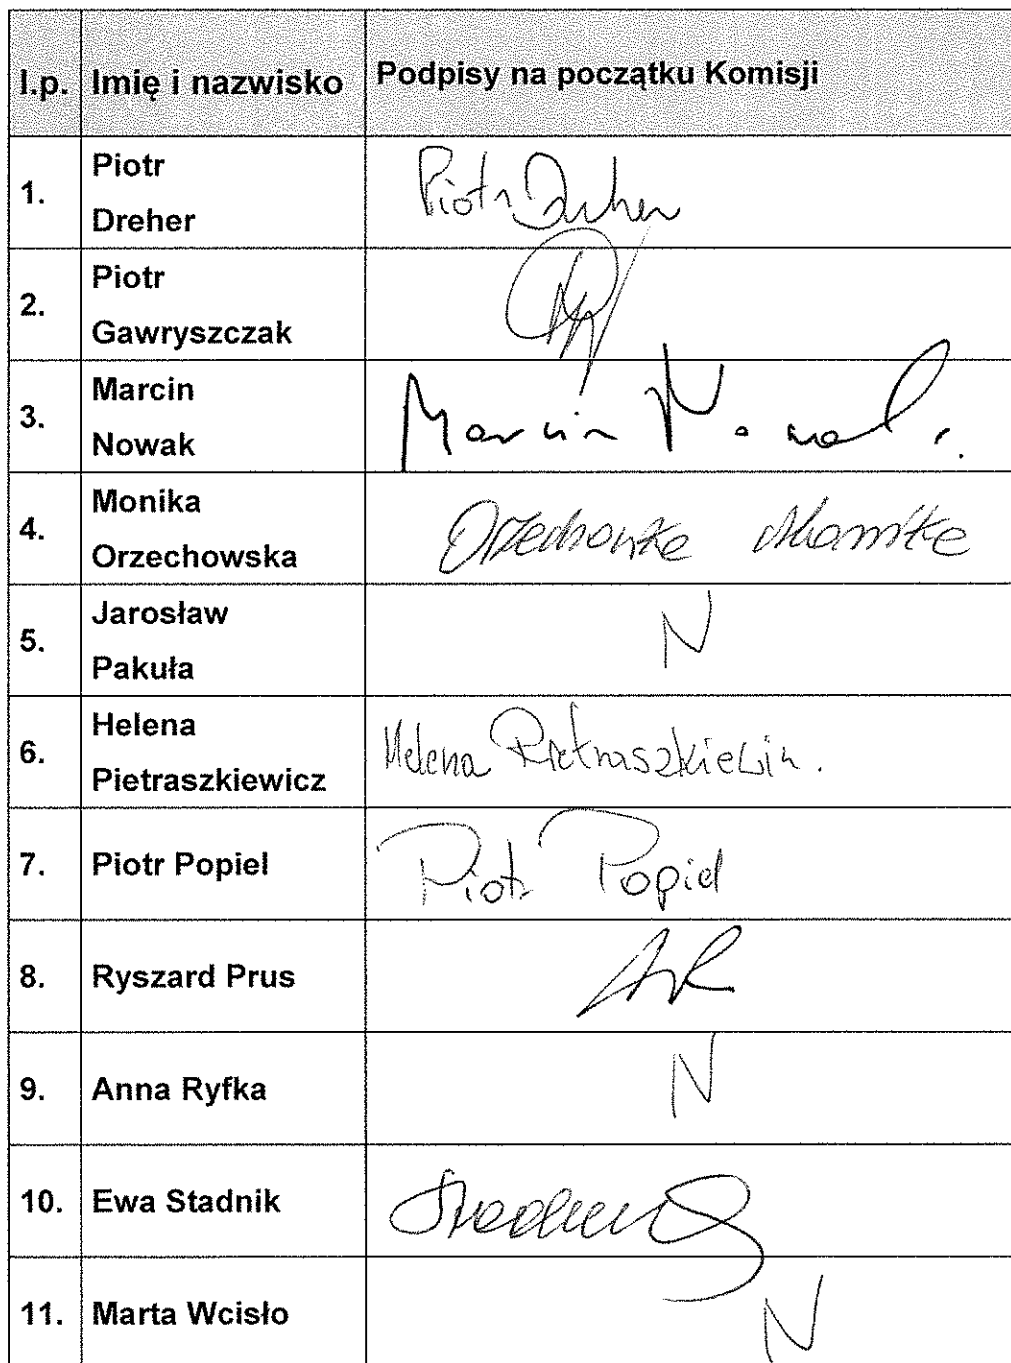 l.p. Imię i nazwisko Podpisy na początku Komisji
1. Piotr Dreher Piotr Dreher
2. Piotr Gawryszczak
3. Marcin Nowak Marcin Nowak.
4. Monika Orzechowska Orzechowska Monika
5. Jarosław Pakuła N
6. Helena Pietraszkiewicz Helena Pietraszkiewicz.
7. Piotr Popiel Piotr Popiel
8. Ryszard Prus
9. Anna Ryfka N
10. Ewa Stadnik
11. Marta Wcisło N